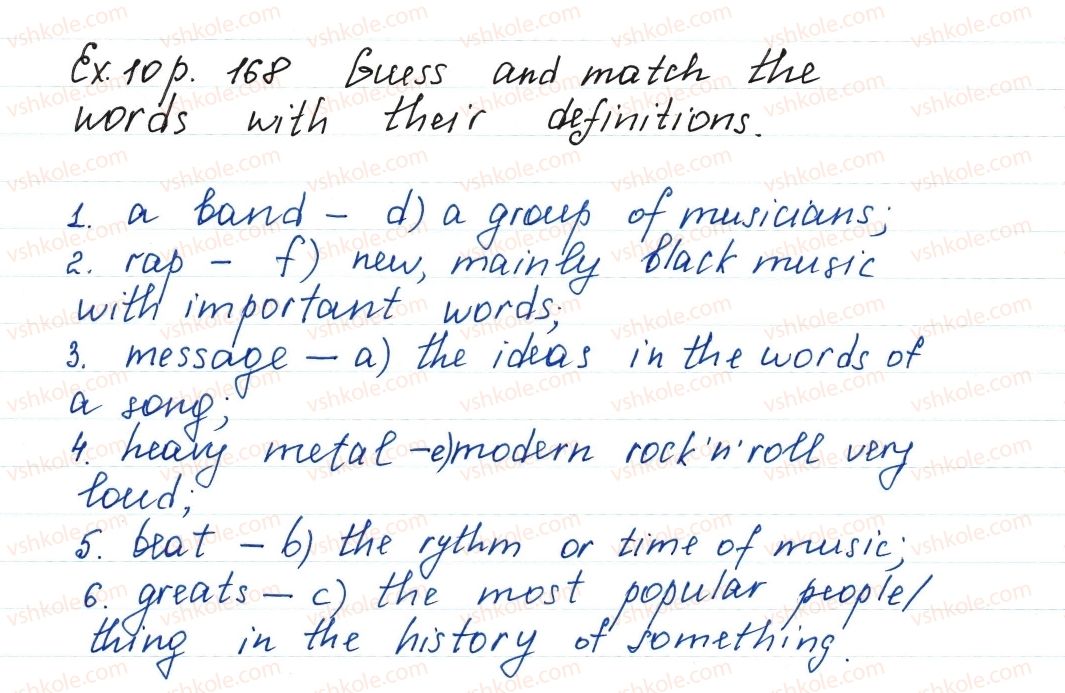 Ex. 10 p. 168 Guess and match the
words with their definitions.
1. a band - d) a group of musicians;
2. rap - f) new, mainly black music
with important words;
3. message - a) the ideas in the words of
a song;
4. heavy metal - e) modern rock'n'roll very
loud;
5. beat - b) the rythm or time of music;
6. greats - c) the most popular people/
thing in the history of something.